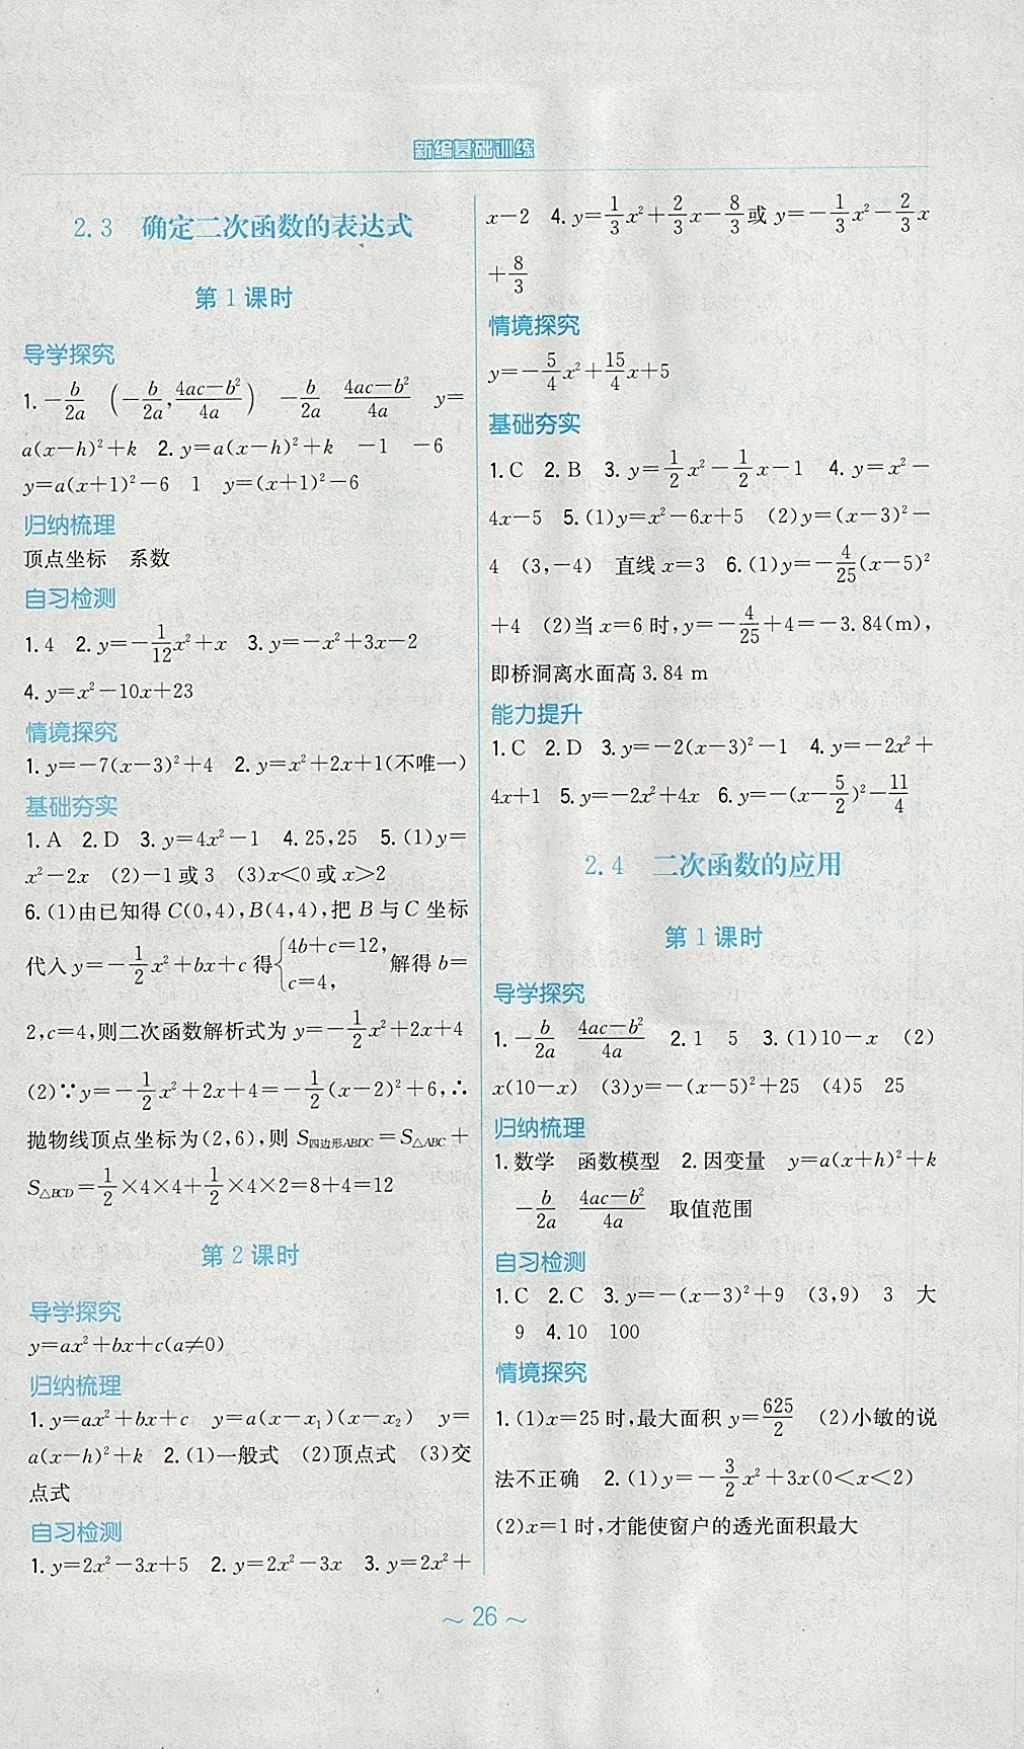 新编基础训练
2.3 确定二次函数的表达式
第 1 课时
导学探究
1. −b/2a (−b/2a, 4ac−b²/4a) −b/2a 4ac−b²/4a y=
a(x−h)²+k 2. y=a(x−h)²+k −1 −6
y=a(x+1)²−6 1 y=(x+1)²−6
归纳梳理
顶点坐标 系数
自习检测
1. 4 2. y=−1/12x²+x 3. y=−x²+3x−2
4. y=x²−10x+23
情境探究
1. y=−7(x−3)²+4 2. y=x²+2x+1(不唯一)
基础夯实
1. A 2. D 3. y=4x²−1 4. 25,25 5. (1)y=
x²−2x (2)−1 或 3 (3)x<0 或 x>2
6. (1)由已知得 C(0,4),B(4,4),把 B 与 C 坐标
代入 y=−1/2x²+bx+c 得{4b+c=12, c=4, 解得 b=
2,c=4,则二次函数解析式为 y=−1/2x²+2x+4
(2)∵y=−1/2x²+2x+4=−1/2(x−2)²+6,∴
抛物线顶点坐标为(2,6),则 S四边形ABDC=S△ABC+
S△BCD=1/2×4×4+1/2×4×2=8+4=12
第 2 课时
导学探究
y=ax²+bx+c(a≠0)
归纳梳理
1. y=ax²+bx+c y=a(x−x₁)(x−x₂) y=
a(x−h)²+k 2. (1)一般式 (2)顶点式 (3)交
点式
自习检测
1. y=2x²−3x+5 2. y=2x²−3x 3. y=2x²+
x−2 4. y=1/3x²+2/3x−8/3或 y=−1/3x²−2/3x
+8/3
情境探究
y=−5/4x²+15/4x+5
基础夯实
1. C 2. B 3. y=1/2x²−1/2x−1 4. y=x²−
4x−5 5. (1)y=x²−6x+5 (2)y=(x−3)²−
4 (3,−4) 直线 x=3 6. (1)y=−4/25(x−5)²
+4 (2)当 x=6 时,y=−4/25+4=−3.84(m),
即桥洞离水面高 3.84 m
能力提升
1. C 2. D 3. y=−2(x−3)²−1 4. y=−2x²+
4x+1 5. y=−2x²+4x 6. y=−(x−5/2)²−11/4
2.4 二次函数的应用
第 1 课时
导学探究
1. −b/2a 4ac−b²/4a 2. 1 5 3. (1)10−x (2)
x(10−x) (3)y=−(x−5)²+25 (4)5 25
归纳梳理
1. 数学 函数模型 2. 因变量 y=a(x+h)²+k
−b/2a 4ac−b²/4a 取值范围
自习检测
1. C 2. C 3. y=−(x−3)²+9 (3,9) 3 大
9 4. 10 100
情境探究
1. (1)x=25 时,最大面积 y=625/2 (2)小敏的说
法不正确 2. (1)y=−3/2x²+3x(0<x<2)
(2)x=1 时,才能使窗户的透光面积最大
~ 26 ~